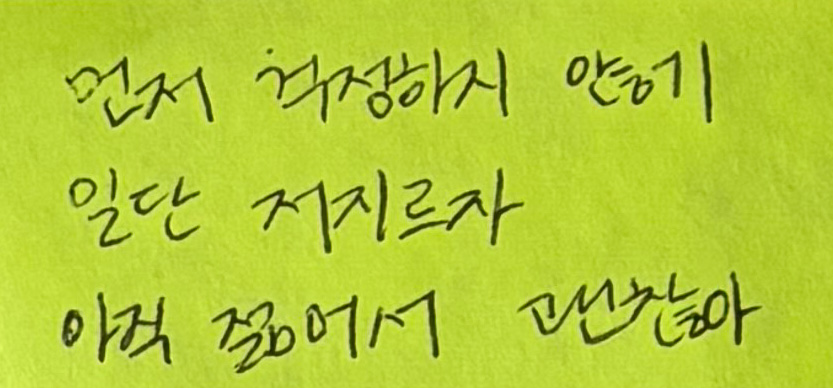 먼저 걱정하지 않기
일단 저지르자
아직 젊어서 괜찮아